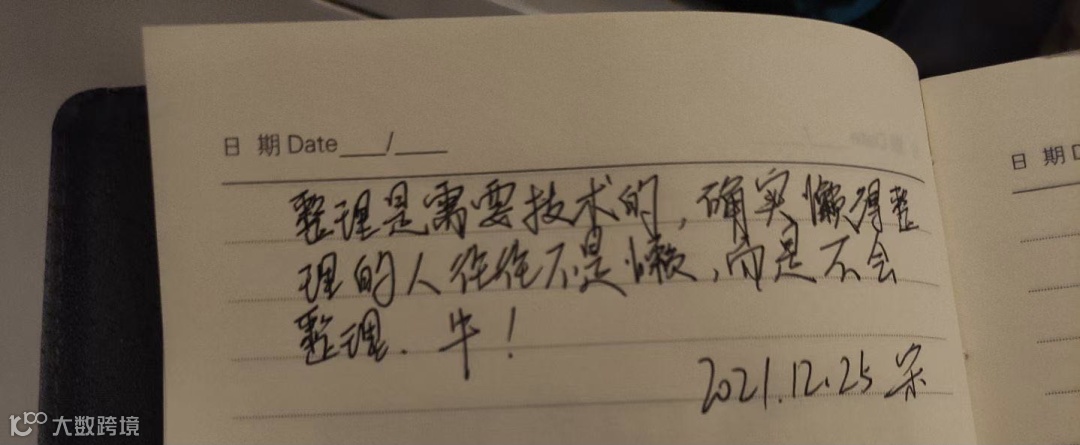 日 期 Date ___/___
整理是需要技术的,确实懒得整
理的人往往不是懒,而是不会
整理.牛!
2021.12.25 宋
日 期 D
大数跨境